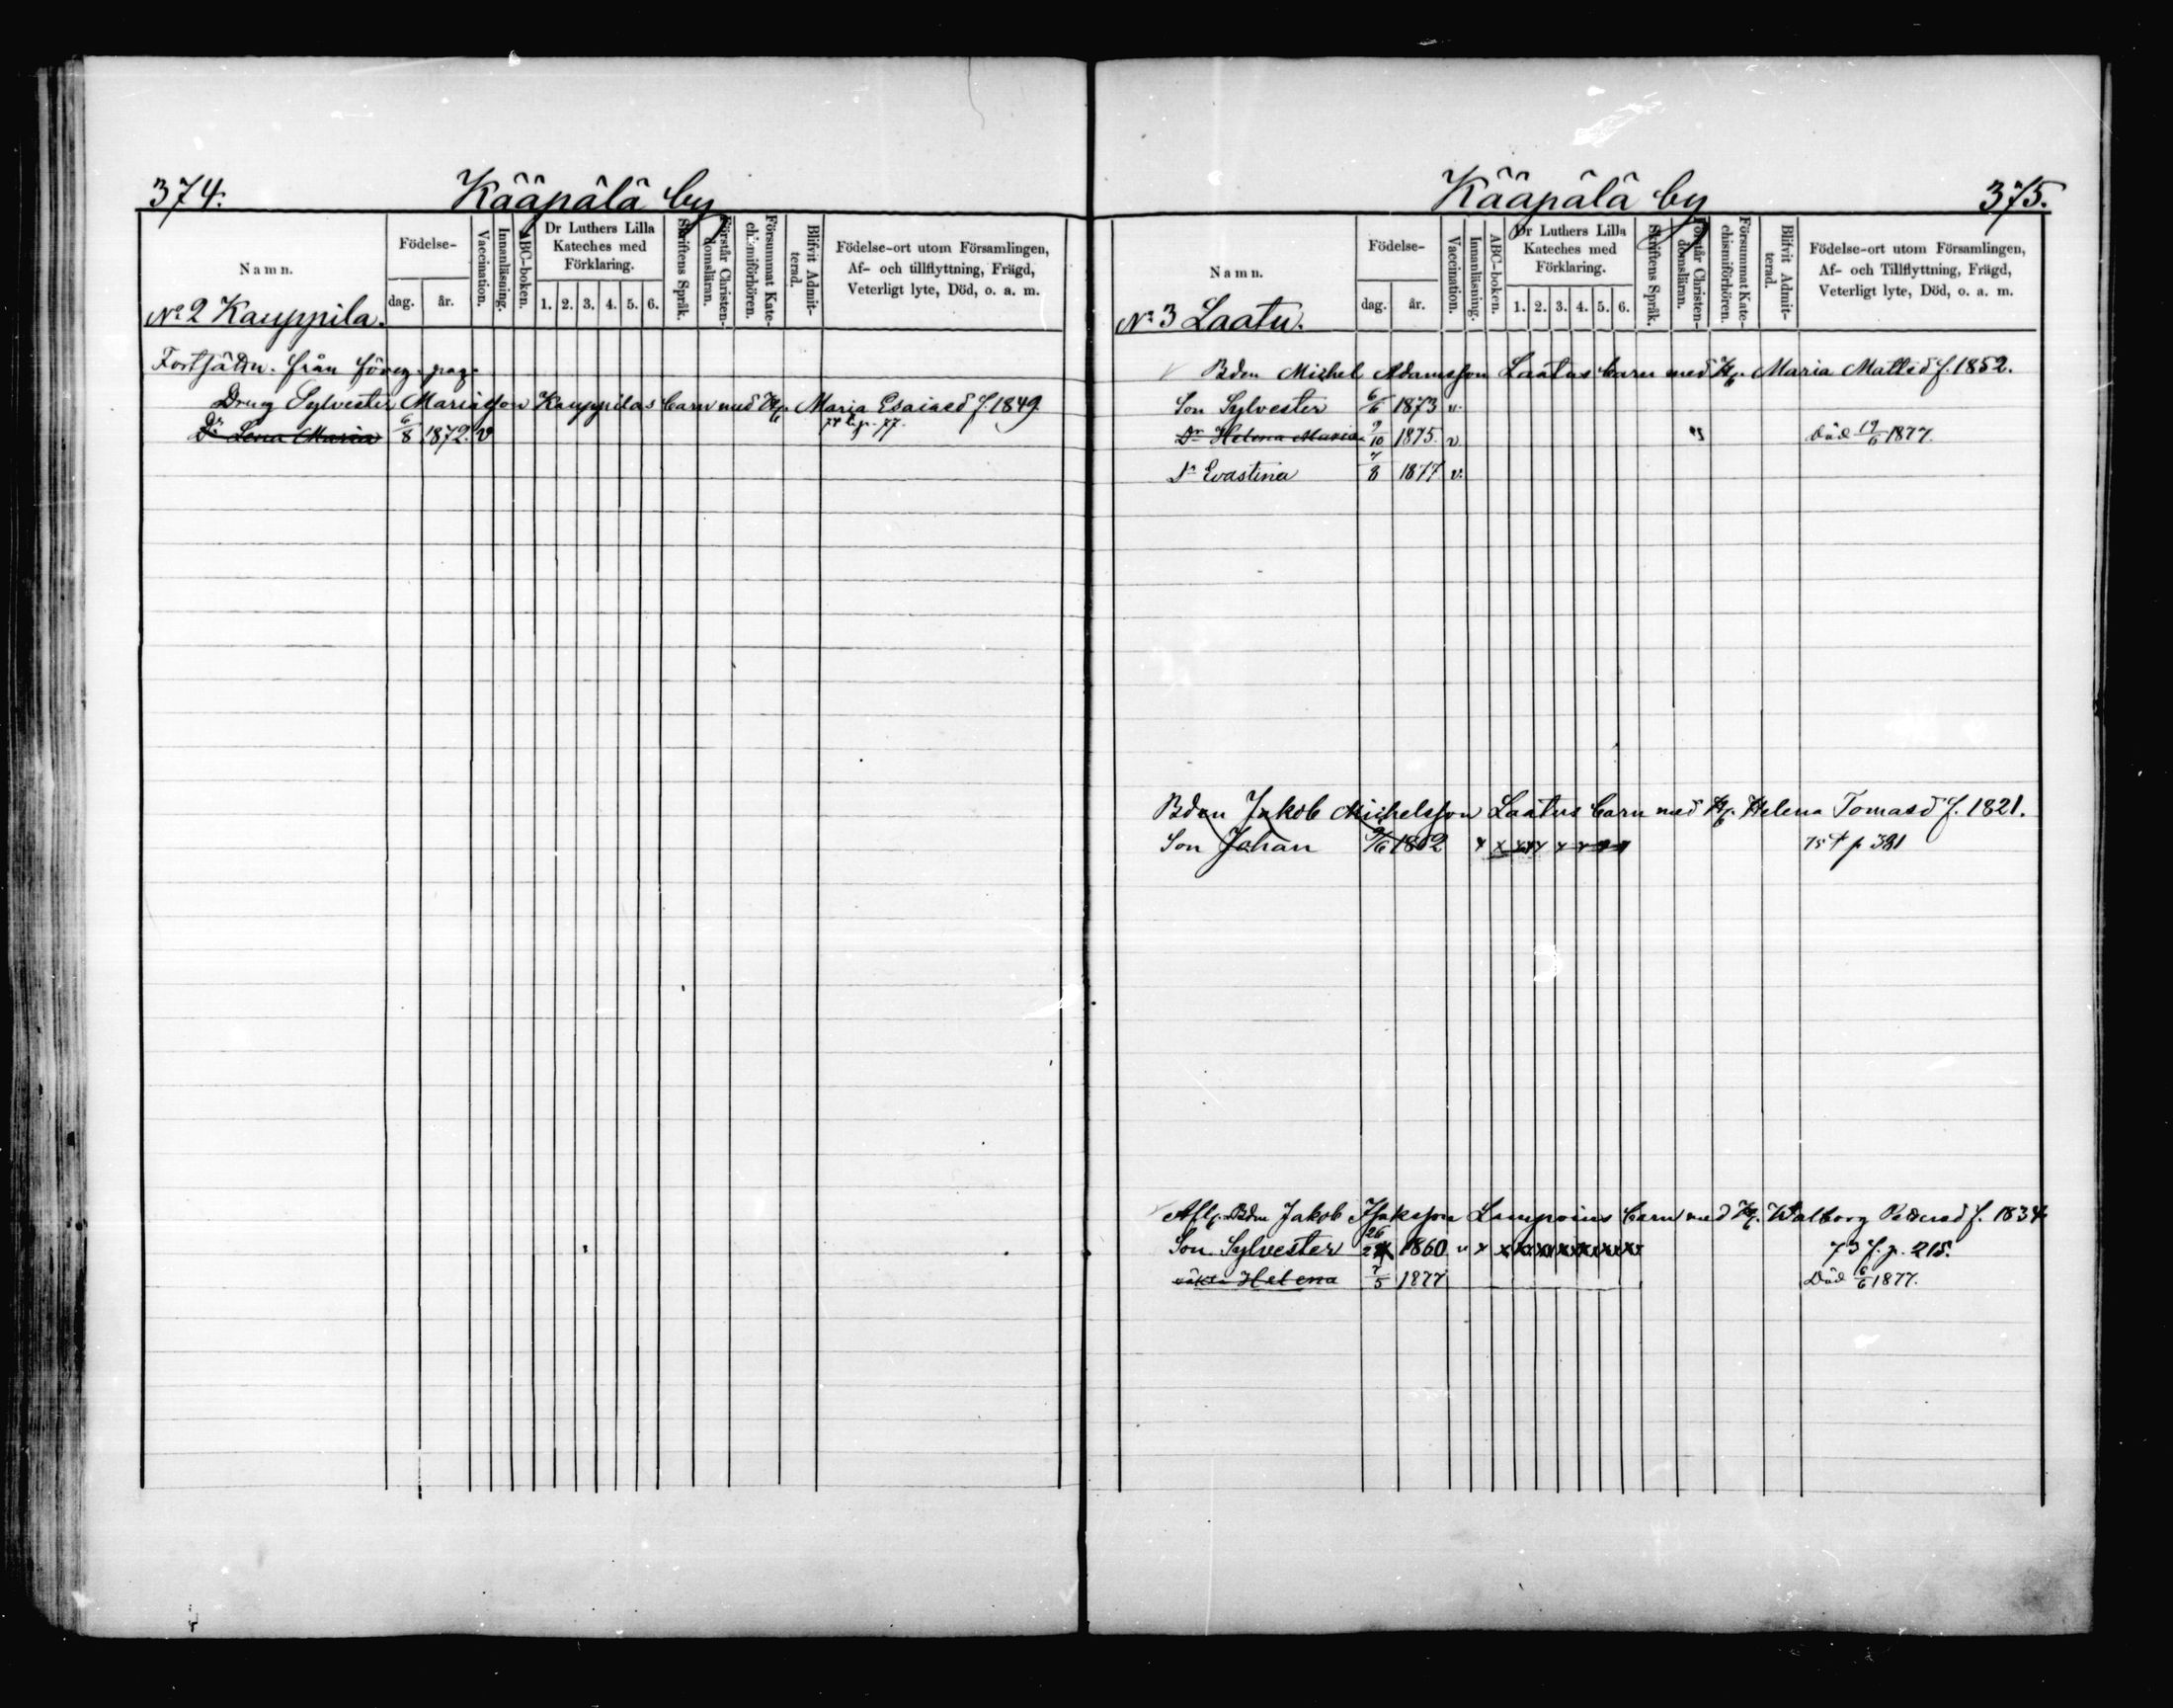 374. Kääpälä by
Namn. Födelse- dag. år. Vaccination. Innanläsning. ABC-boken. Dr Luthers Lilla Kateches med Förklaring. 1. 2. 3. 4. 5. 6. Skriftens Språk. Förstår Christendomsläran. Försummat Katechismiförhören. Blifvit Admitterad. Födelse-ort utom Församlingen, Af- och tillflyttning, Frägd, Veterligt lyte, Död, o. a. m.
No 2 Kauppila.
Fortsättn. från föreg. pag.
Dreng Sylvester Mariasson Kauppilas barn med Hu Maria Esaiaed f. 1849.
Dr Lena Maria 6/8 1872. v 77
Kääpälä by 375.
Namn. Födelse- dag. år. Vaccination. Innanläsning. ABC-boken. Dr Luthers Lilla Kateches med Förklaring. 1. 2. 3. 4. 5. 6. Skriftens Språk. Förstår Christendomsläran. Försummat Katechismiförhören. Blifvit Admitterad. Födelse-ort utom Församlingen, Af- och Tillflyttning, Frägd, Veterligt lyte, Död, o. a. m.
No 3 Laatu.
Bden Michel Adamsson Laatus barn med Hu Maria Mattsd f. 1852.
Son Sylvester 6/6 1873 v.
Dr Helena Maria 9/10 1875. v död 19/6 1877.
Dr Evastina 7/8 1877 v.
Bden Jakob Michelsson Laatus barn med Hu Helena Tomasd f. 1821.
Son Johan 9/6 1862 x x x x x x x 75 + p 381
Bdn Jakob Isaksson barn med Hu Walborg f. 1834
Son Sylvester 26 1860 v x x x x x x x x x 73 f. p. 215.
Helena 7/5 1877 Död 6/6 1877.